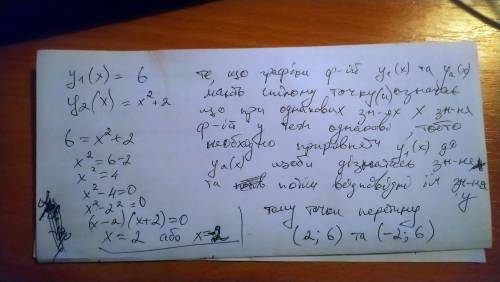 y₁(x) = 6
y₂(x) = x²+2
6 = x²+2
x² = 6-2
x² = 4
x²-4=0
x²-2²=0
(x-2)(x+2)=0
x = 2 або x=-2
те, що графіки ф-ій y₁(x) та y₂(x)
мають спільну точку(и) означає
що при однакових зн-ях x зн-ня
ф-ій y теж однакові, тобто
необхідно прирівняти y₁(x) до
y₂(x) щоби дізнатись зн-ня
та потім відповідні їм зн-ня y
тому точки перетину
(2; 6) та (-2; 6)